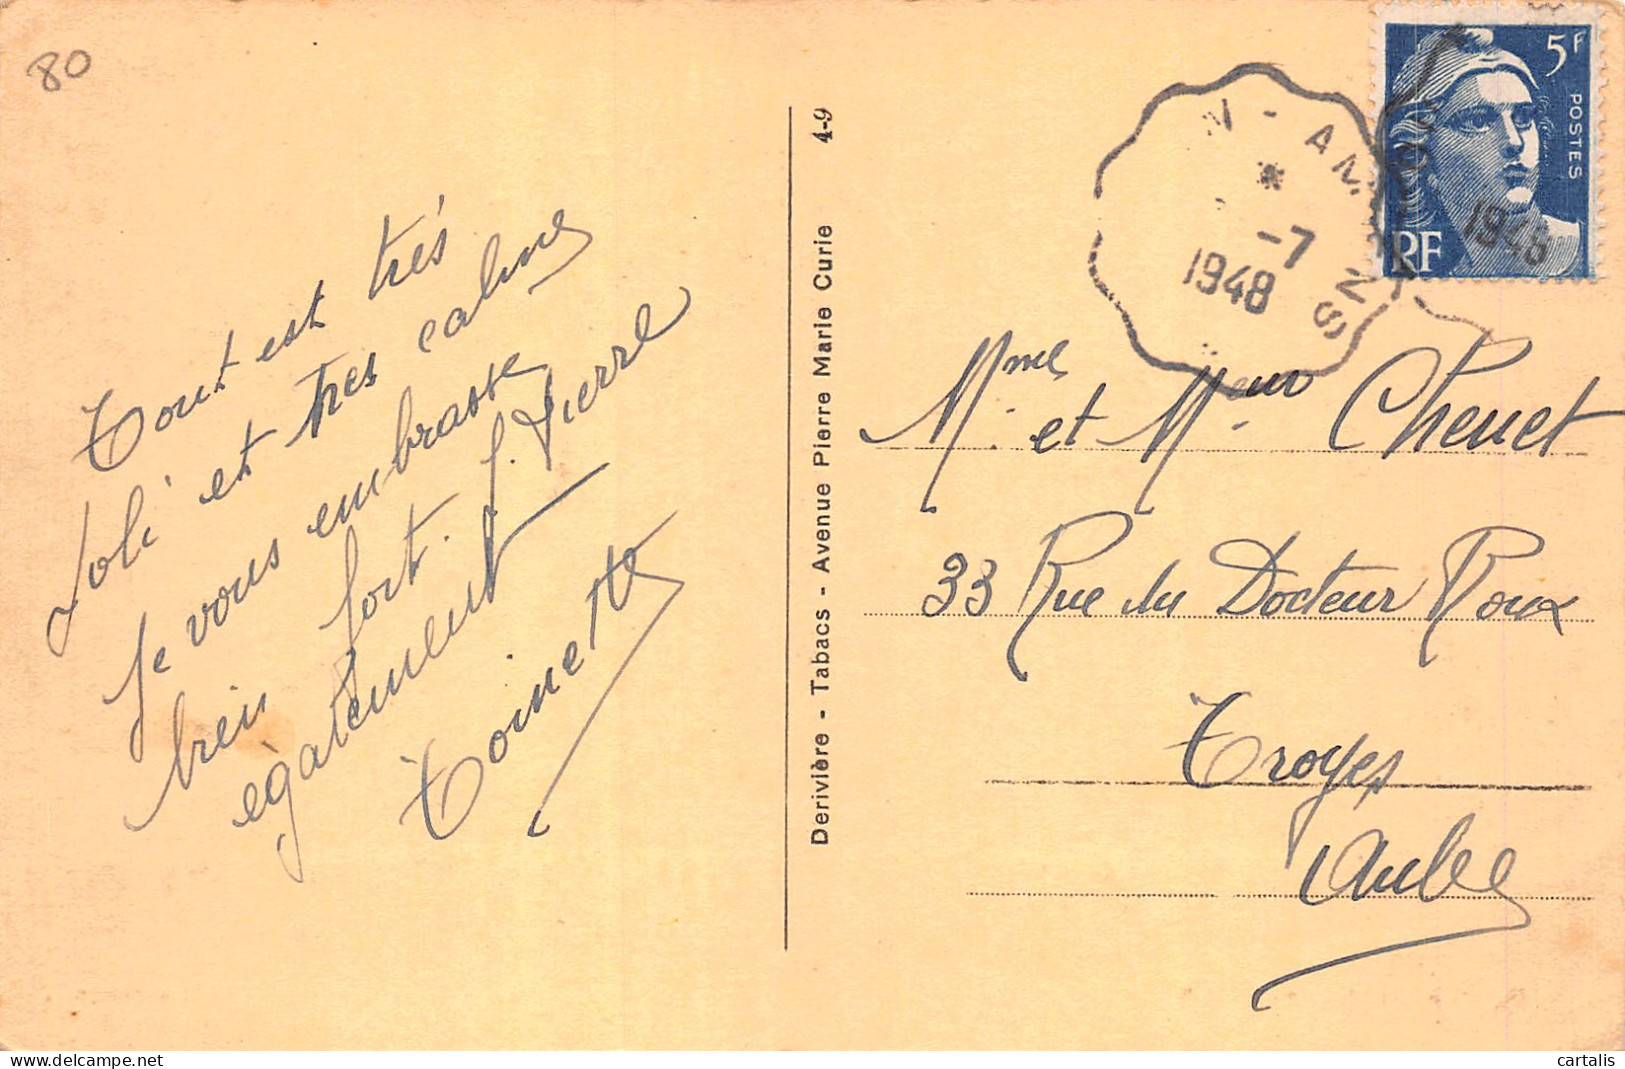 80
Tout est très
Joli et très calme
Je vous embrasse
bien fort. J. Pierre
ègalement
Toinette
Derivière - Tabacs - Avenue Pierre Marie Curie 4-9
N - AM NS
* -7
1948
5F
POSTES
RF
1948
Mme et Mur Chenet
33 Rue du Docteur Roux
Troyes
Aube
cartalis